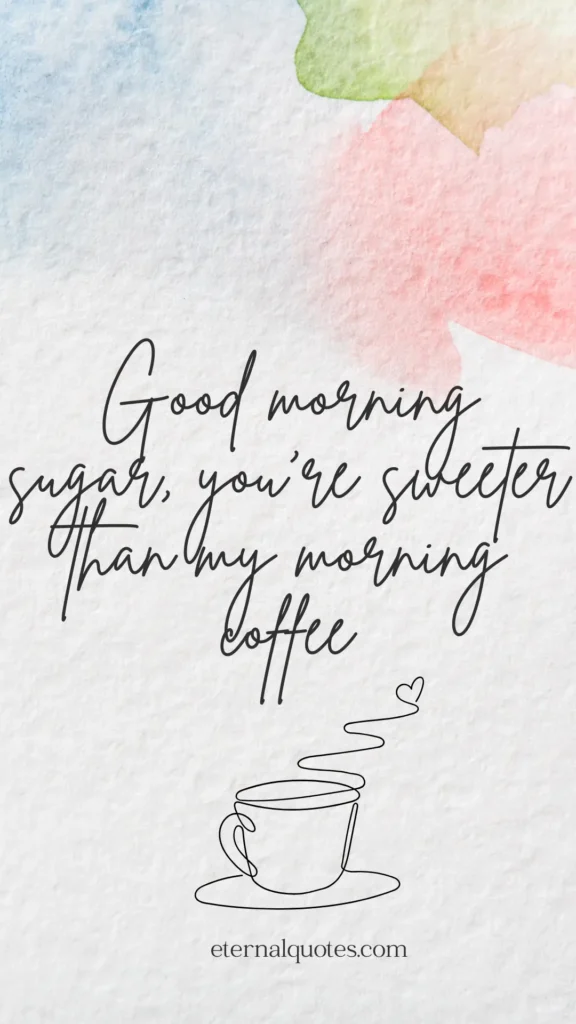 Good morning
sugar, you're sweeter
than my morning
coffee
eternalquotes.com